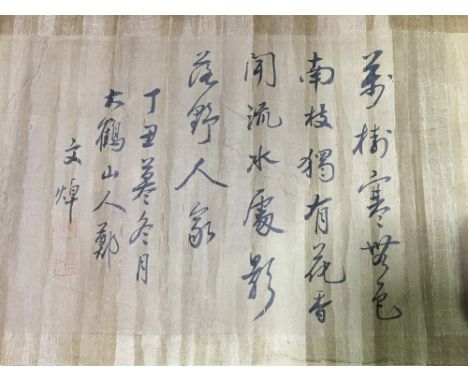 萬樹寒無色
南枝獨有花香
聞流水處影
落野人家
丁丑暮冬月
大鶴山人鄭
文焯